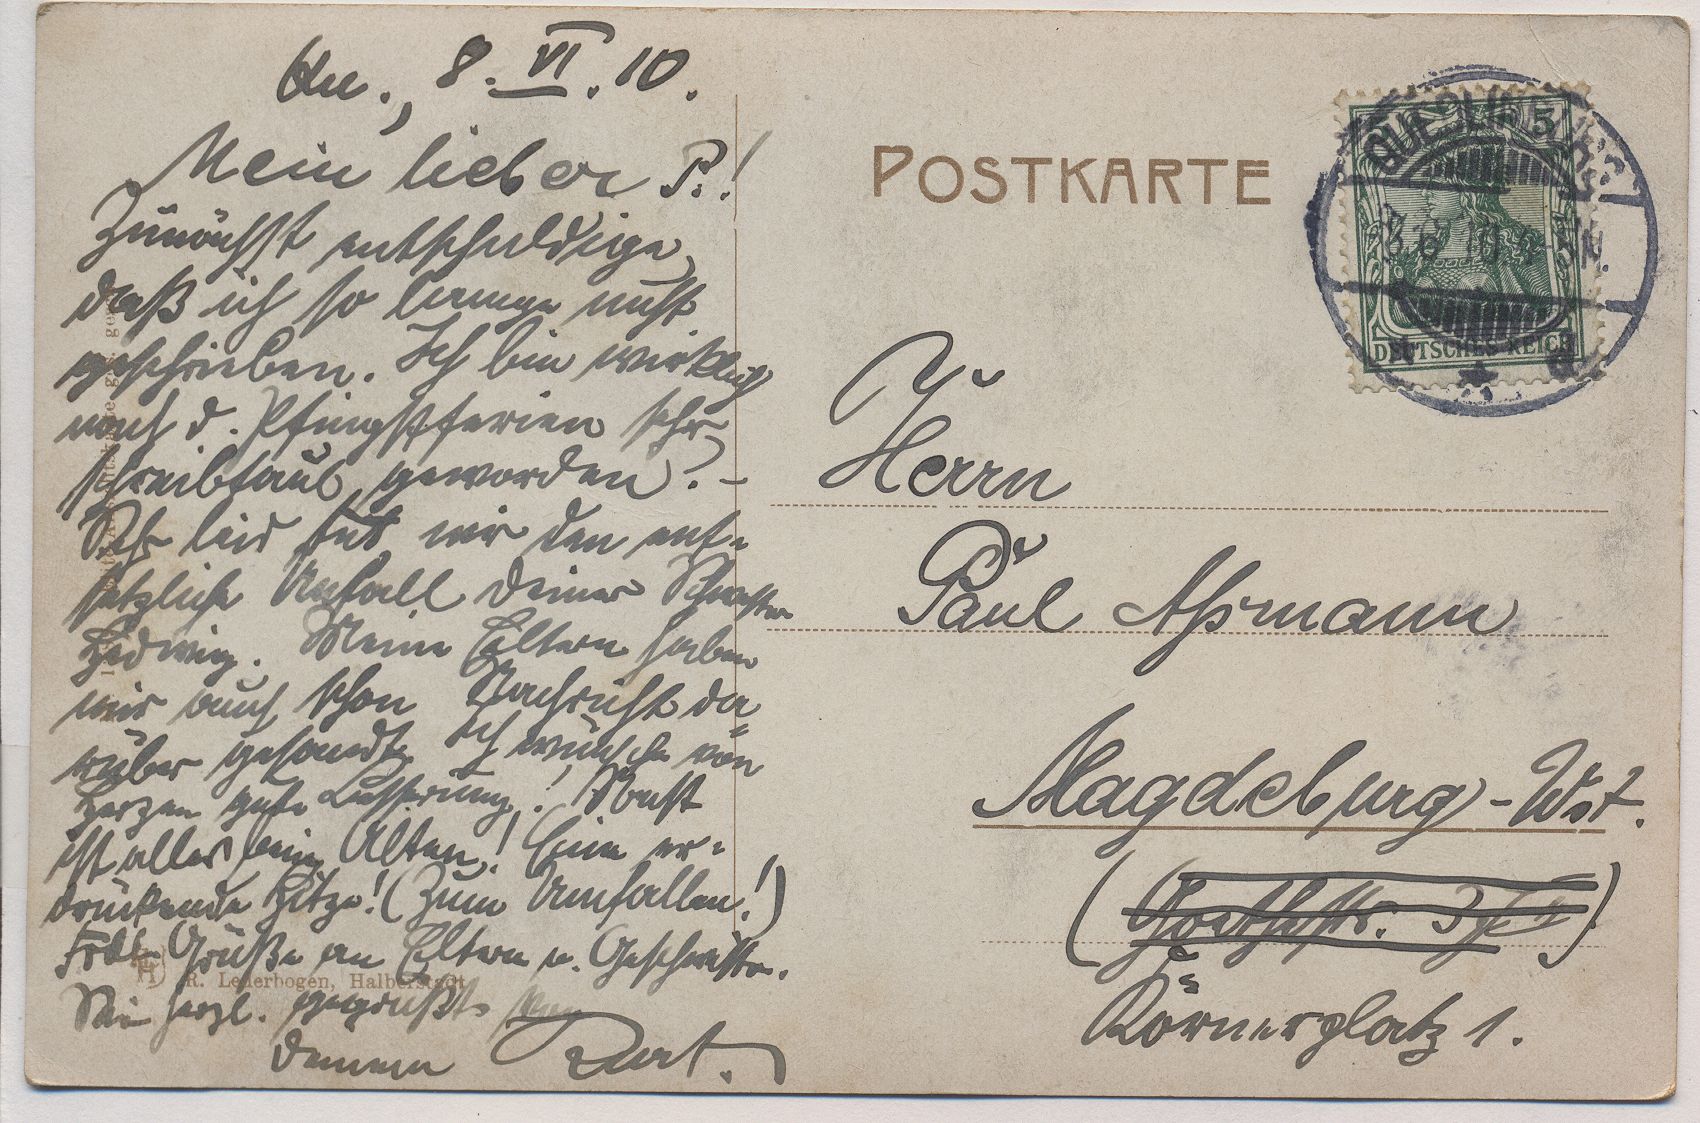 Qu., 8. VI. 10.
Mein lieber P.!
Zunächst entschuldige,
daß ich so lange nicht
geschrieben. Ich bin wirklich
nach d. Pfingstferien sehr
schreibfaul geworden. –
Sehr leid tut mir den ent-
setzliche Unfall deiner Schwester
Hedwig. Meine Eltern haben
mir auch schon Nachricht da-
rüber gesandt. Ich wünsche von
Herzen gute Besserung! Sonst
ist alles beim Alten! Eine er-
drückende Hitze! (Zum Umfallen!)
Frdl. Grüße an Eltern u. Geschwister.
Sei herzl. gegrüßt von
deinem Kurt.
R. Lederbogen, Halberstadt
POSTKARTE
QUEDLINBURG
8.6.10
5
DEUTSCHES REICH
Herrn
Paul Aßmann
Magdeburg-Wst.
(Goethestr. )
Körnerplatz 1.